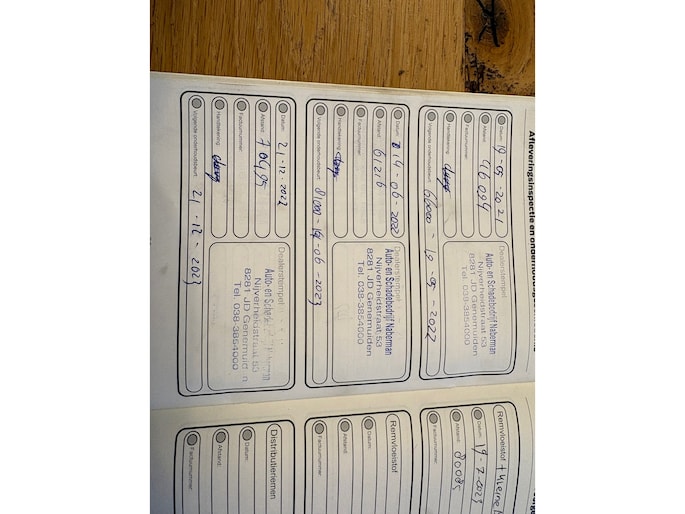 Afleveringsinspectie en
Datum: 19-05-2021
Afstand: 46094
Factuurnummer:
Handtekening:
Volgende onderhoudsbeurt: 66000 - 19-05-2022
Dealerstempel
Auto- en Schadebedrijf Naberman
Nijverheidstraat 53
8281 JD Genemuiden
Tel. 038-3854000
Datum: 14-06-2022
Afstand: 61216
Factuurnummer:
Handtekening:
Volgende onderhoudsbeurt: 81000 - 14-06-2023
Dealerstempel
Auto- en Schadebedrijf Naberman
Nijverheidstraat 53
8281 JD Genemuiden
Tel. 038-3854000
Datum: 21-12-2022
Afstand: 70495
Factuurnummer:
Handtekening:
Volgende onderhoudsbeurt: 21-12-2023
Dealerstempel
Auto- en
Nijverheidstraat 53
8281 JD Genemuid n
Tel. 038-3854000
Remvloeistof + kleine
Datum: 19-7-2023
Afstand: 80085
Factuurnummer:
Remvloeistof
Datum:
Afstand:
Factuurnummer:
Distributieriemen
Datum:
Afstand:
Factuurnummer: